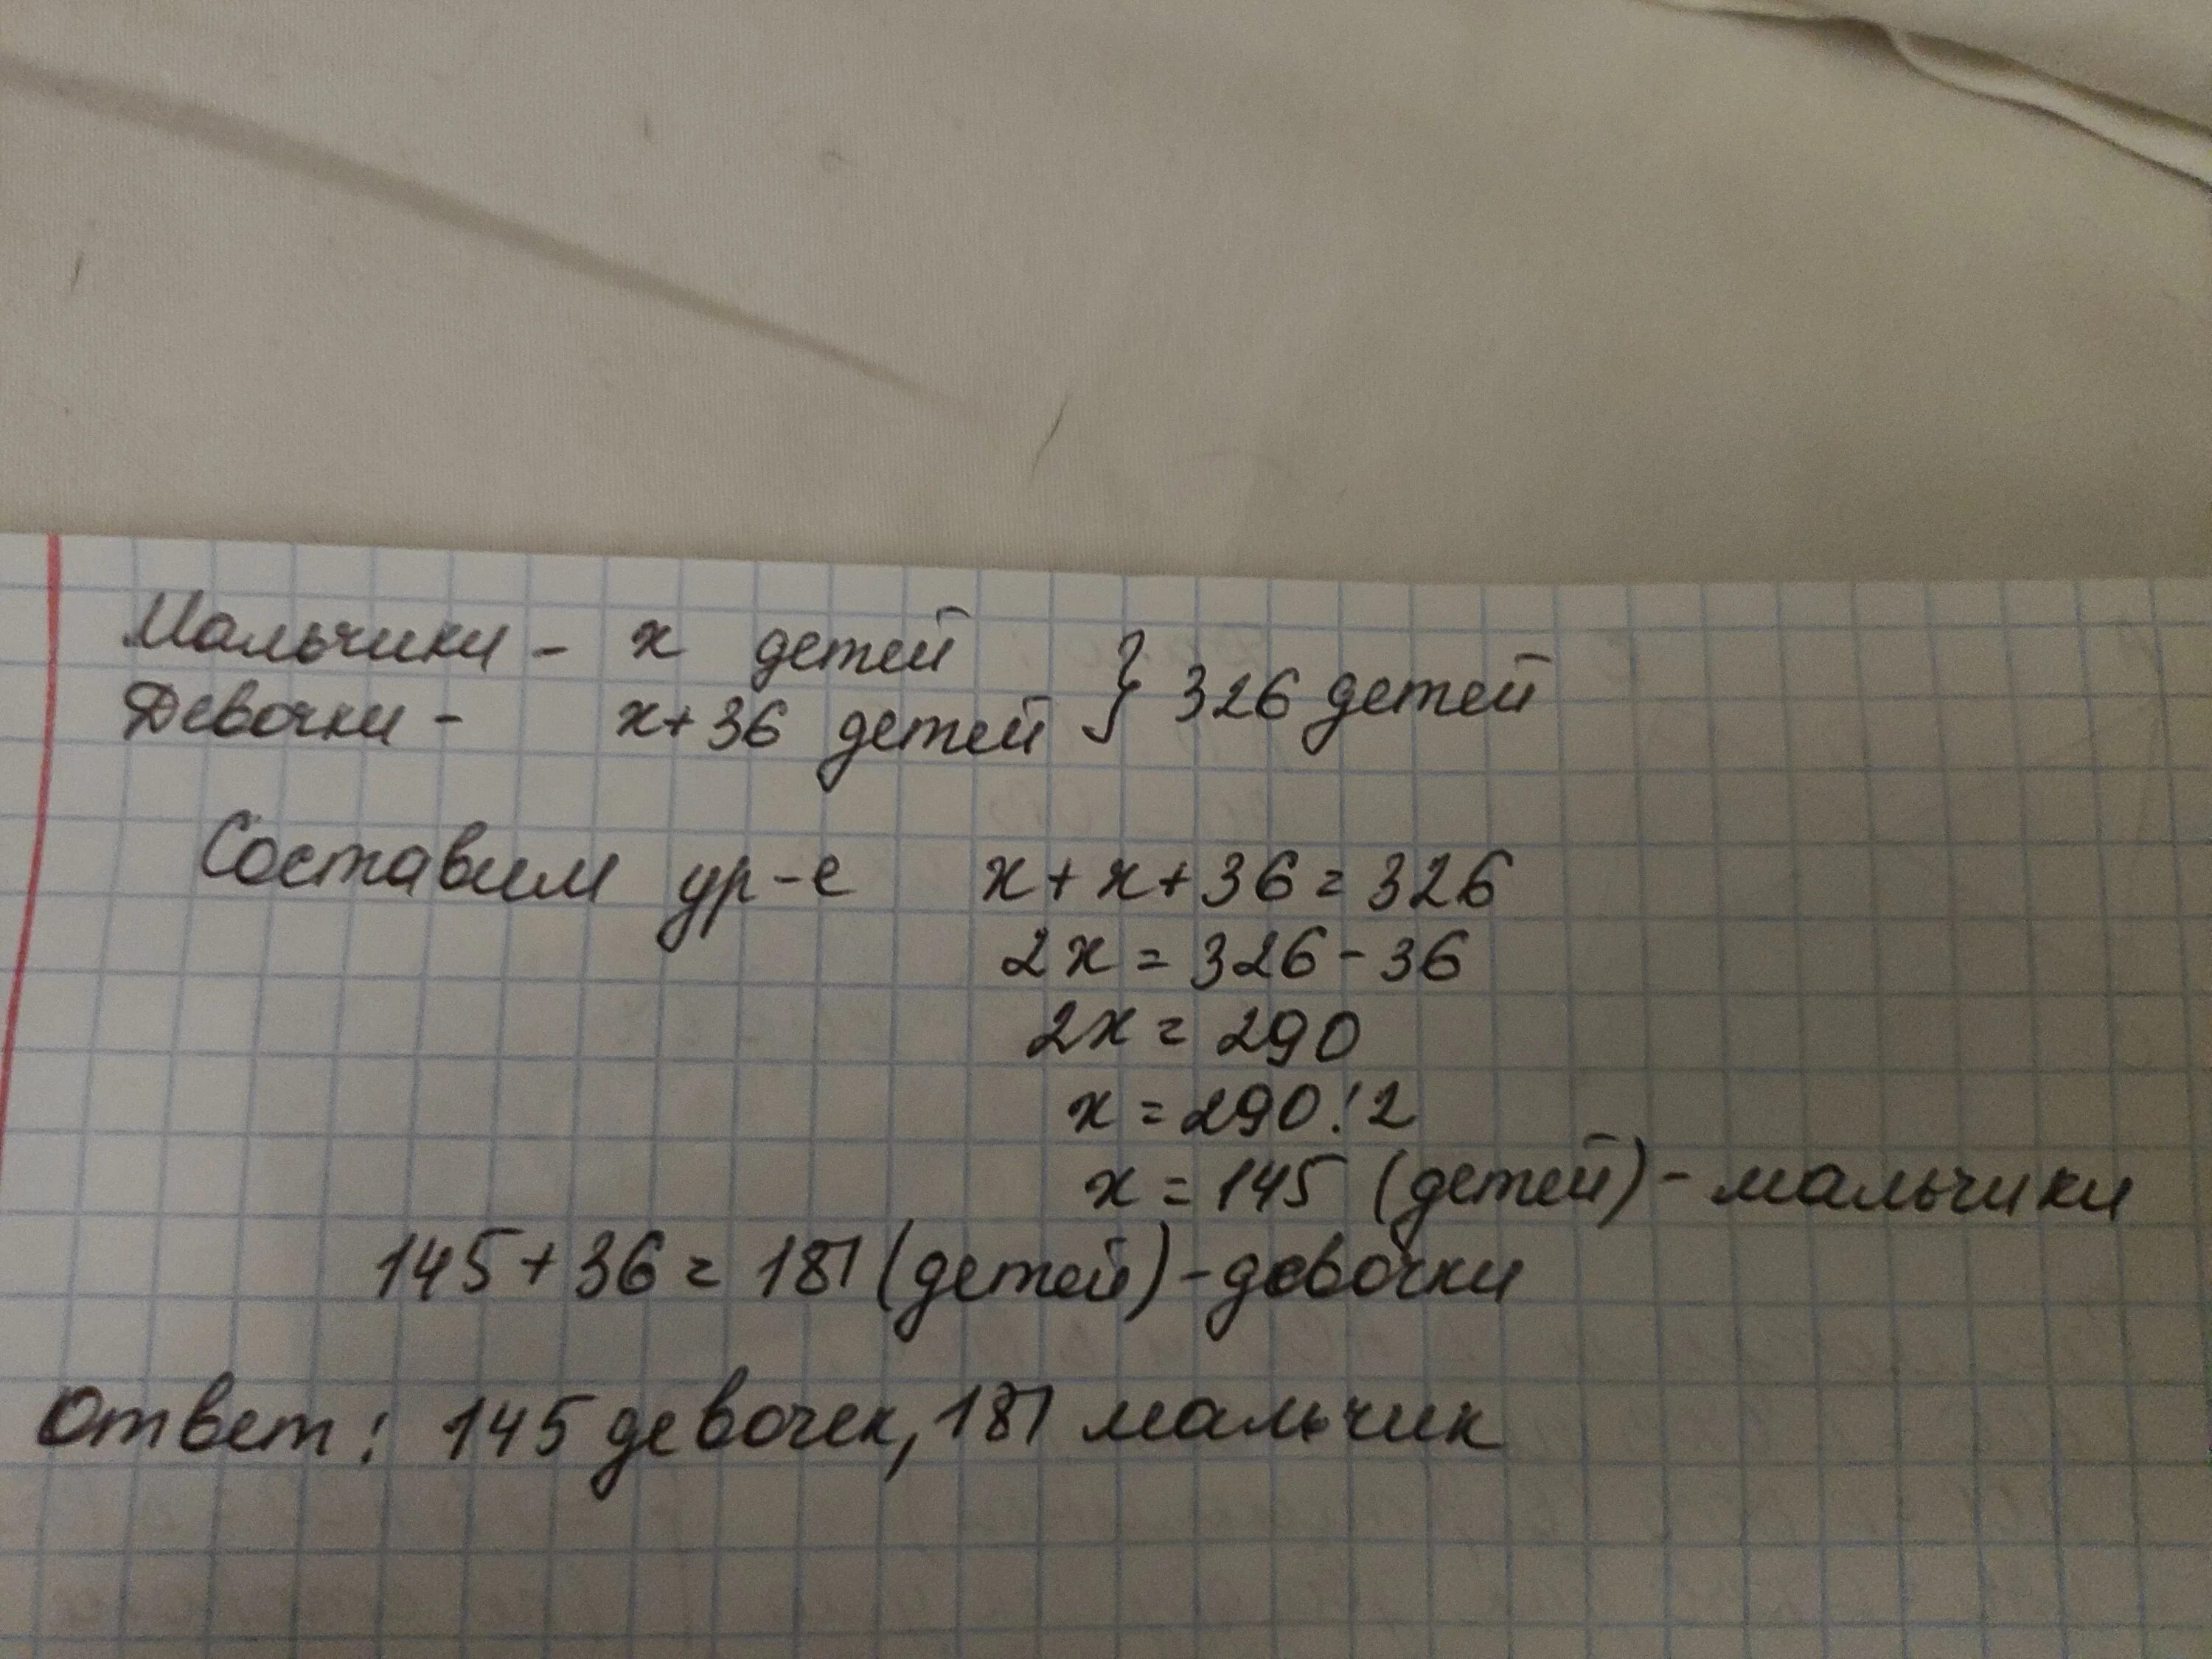 Мальчики - х детей
Девочки - х+36 детей } 326 детей
Составим ур-е х+х+36=326
2х=326-36
2х=290
х=290:2
х=145 (детей)-мальчики
145+36=181(детей)-девочки
Ответ: 145 девочек, 181 мальчик